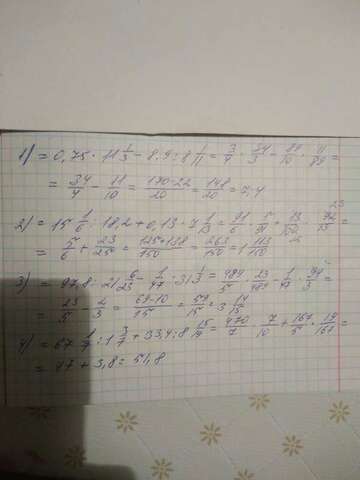 1) = 0,75 · 11 1/3 - 8,9 : 8 1/11 = 3/4 · 34/3 - 89/10 · 11/89 =
= 34/4 - 11/10 = 170-22/20 = 148/20 = 7,4
2) = 15 1/6 : 18,2 + 0,13 · 7 1/13 = 91/6 · 5/91 + 13/100 · 92/13 =
= 5/6 + 23/25 = 125+138/150 = 263/150 = 1 113/150
3) = 97,8 : 21 6/23 - 1/47 · 31 1/3 = 489/5 · 23/489 - 1/47 · 94/3 =
= 23/5 - 2/3 = 69-10/15 = 59/15 = 3 14/15
4) = 67 1/7 : 1 3/7 + 33,4 : 8 15/19 = 470/7 · 7/10 + 167/5 · 19/167 =
= 47 + 3,8 = 51,8